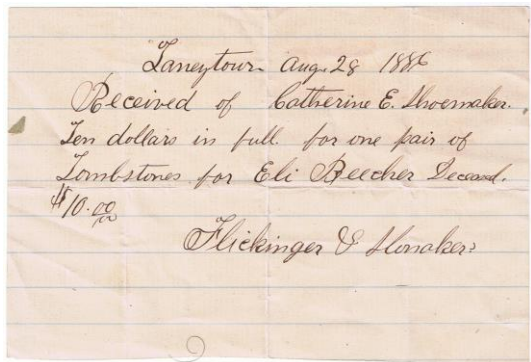 Taneytown Aug. 28 1886
Received of Catherine E. Shoemaker.
Ten dollars in full for one pair of
Tombstones for Eli Beecher Deceasd.
$10.00
Flickinger &